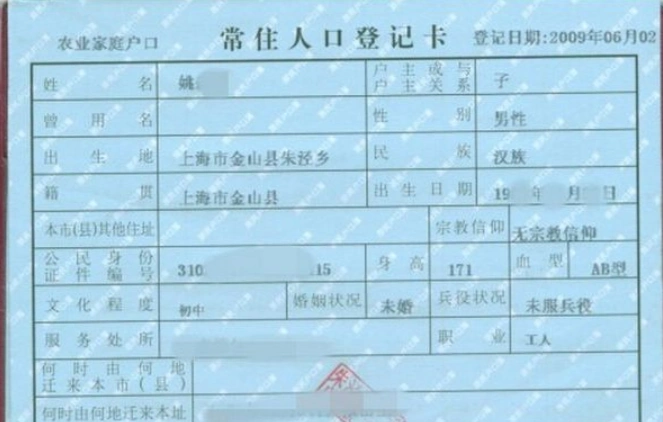 农业家庭户口 常住人口登记卡 登记日期:2009年06月02
姓名 姚 户主或与户主关系 子
曾用名 性别 男性
出生地 上海市金山县朱泾乡 民族 汉族
籍贯 上海市金山县 出生日期 19 年 月 日
本市(县)其他住址 宗教信仰 无宗教信仰
公民身份证件编号 310 15 身高 171 血型 AB型
文化程度 初中 婚姻状况 未婚 兵役状况 未服兵役
服务处所 职业 工人
何时由何地迁来本市(县)
何时由何地迁来本址